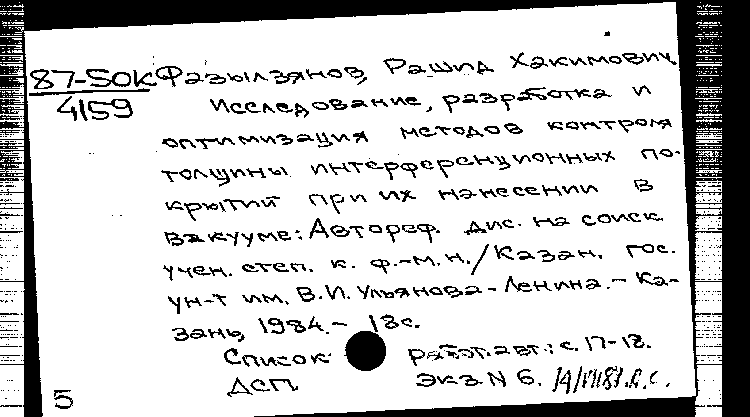 87-50к Фазылзянов, Рашид Хакимович
4159 Исследование, разработка и
оптимизация методов контроля
толщины интерференционных по-
крытий при их нанесении в
вакууме: Автореф. дис. на соиск.
учен. степ. к. ф.-м.н. / Казан. гос.
ун-т им. В.И. Ульянова-Ленина. - Ка-
зань, 1984. - 18с.
Список работ. авт.: с. 17-18.
ДСП Экз. N 6.
5